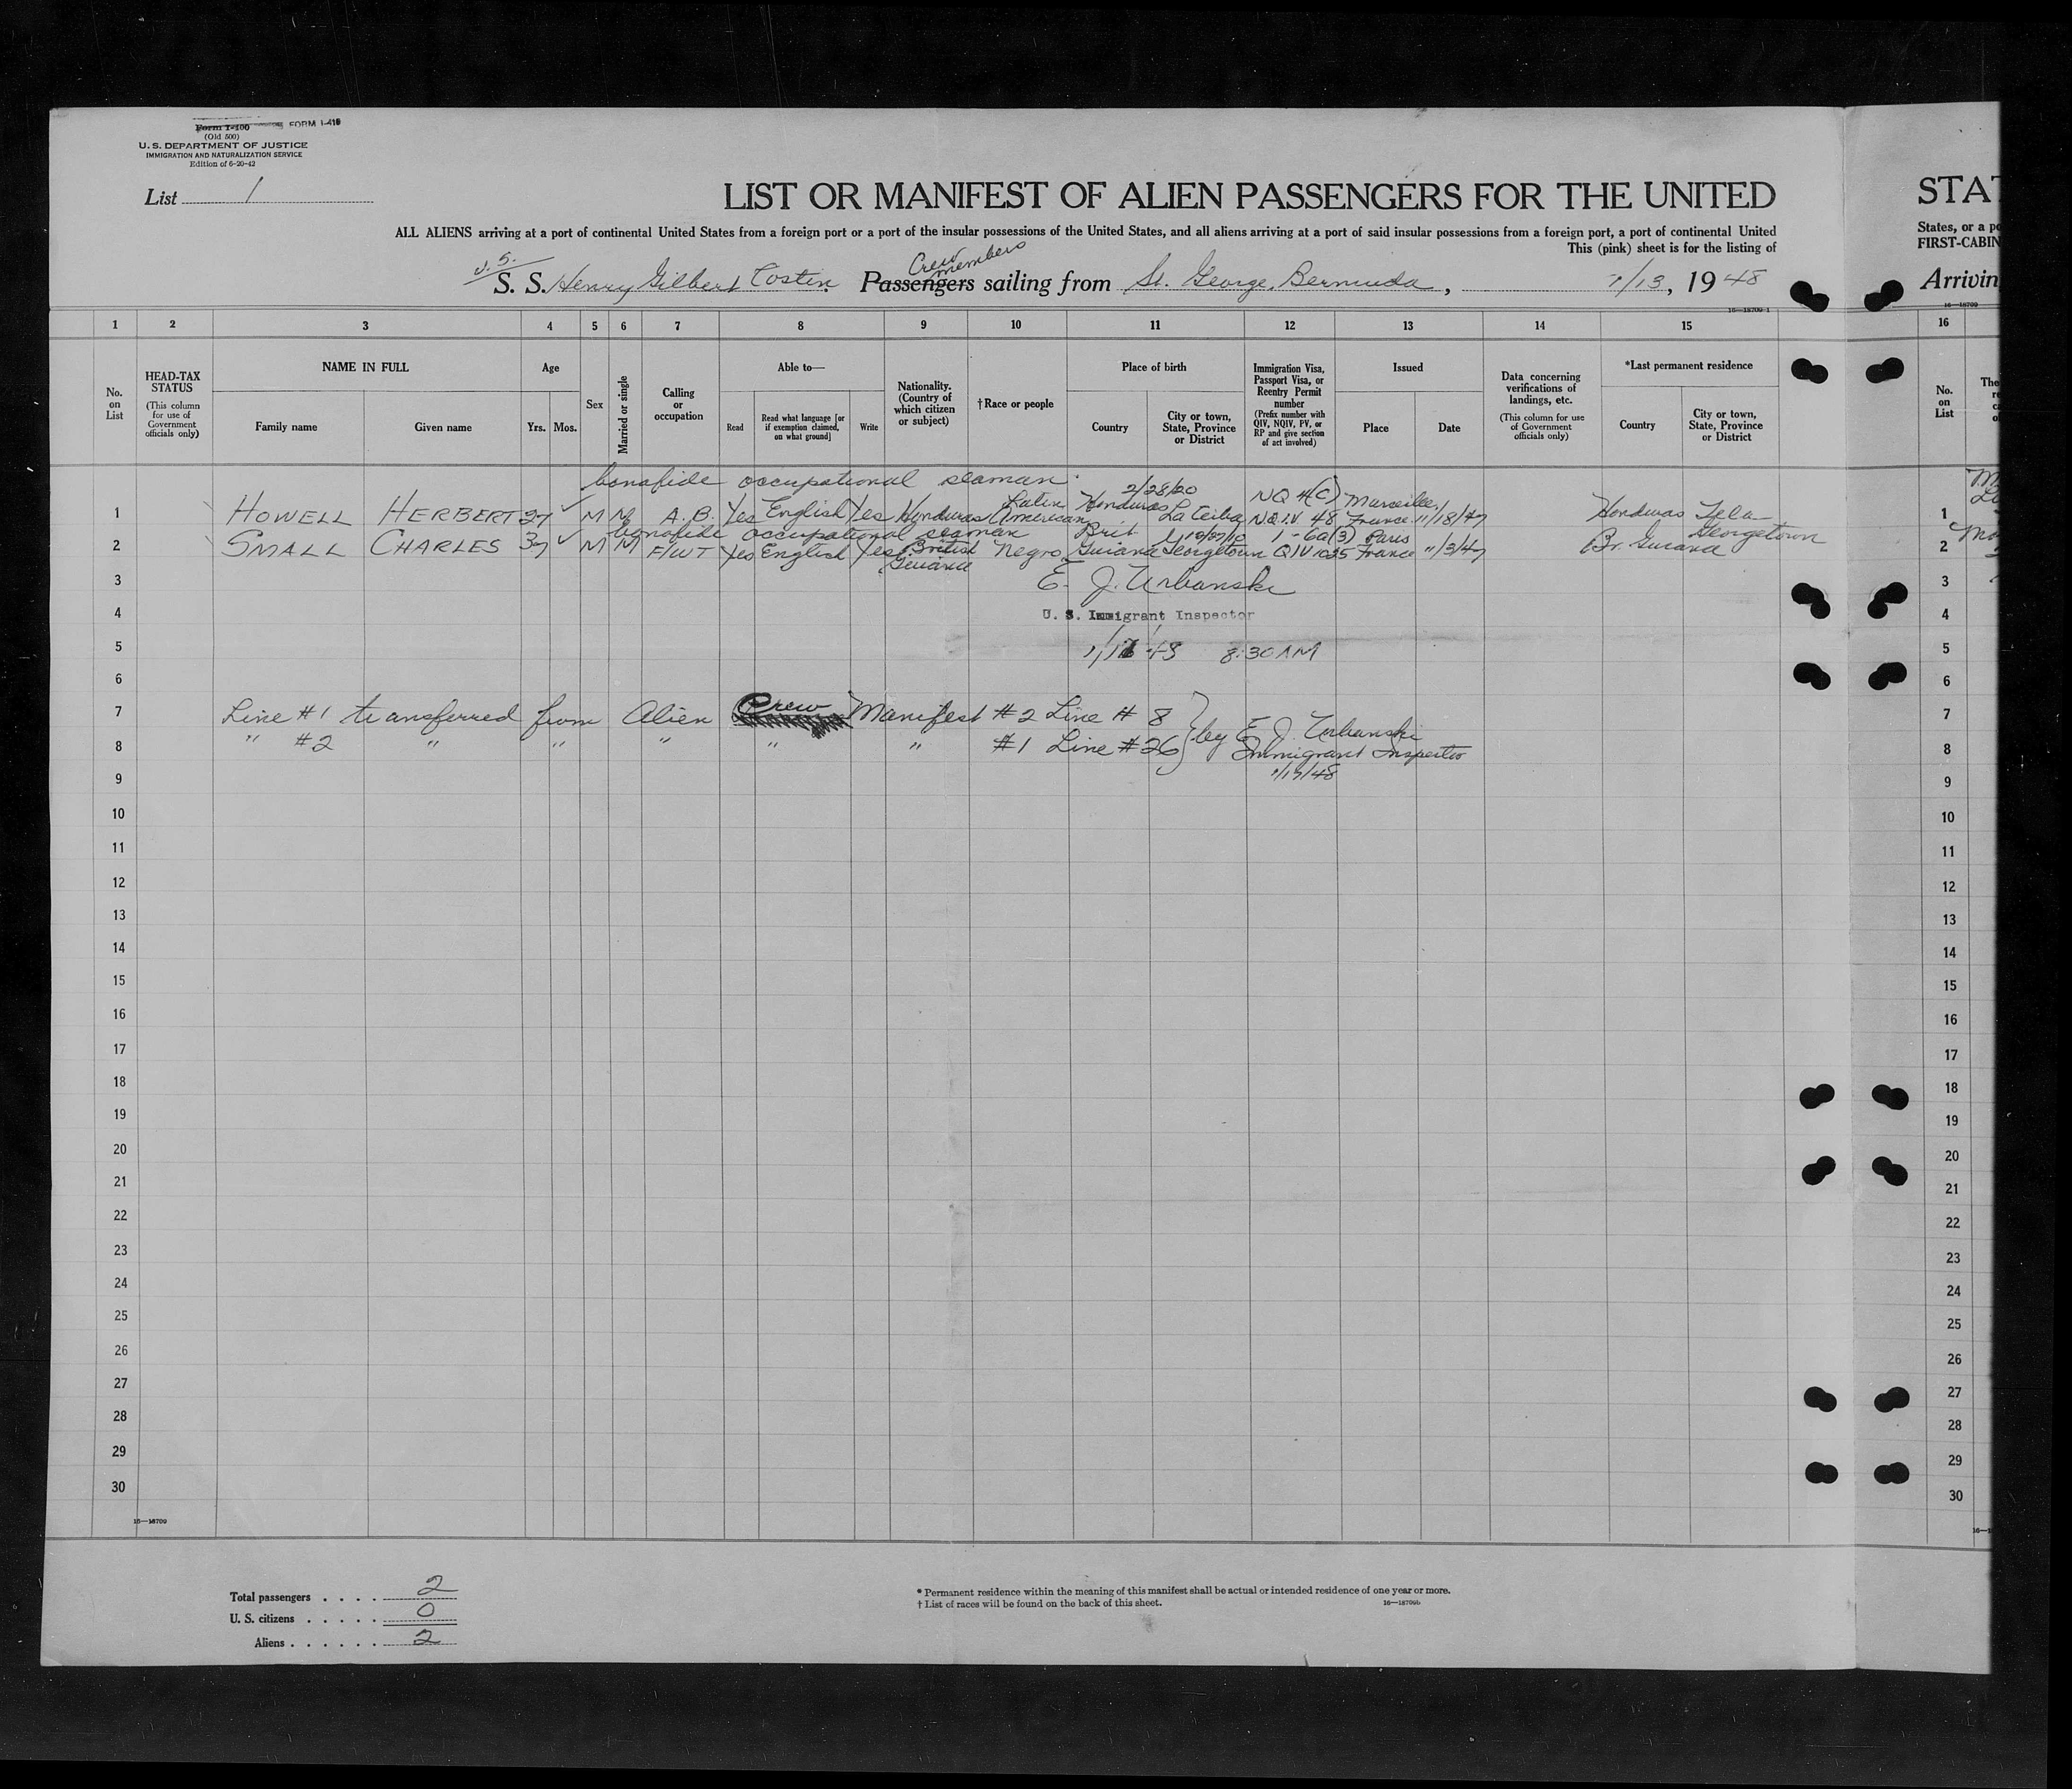 Form I-400 FORM I-415
(Old 500)
U. S. DEPARTMENT OF JUSTICE
IMMIGRATION AND NATURALIZATION SERVICE
Edition of 6-20-42
List 1
LIST OR MANIFEST OF ALIEN PASSENGERS FOR THE UNITED
STAT
ALL ALIENS arriving at a port of continental United States from a foreign port or a port of the insular possessions of the United States, and all aliens arriving at a port of said insular possessions from a foreign port, a port of continental United
States, or a po
This (pink) sheet is for the listing of
FIRST-CABIN
Crew members
U.S.
S. S. Henry Gilbert Costin Passengers sailing from St. George, Bermuda, 1/13, 1948
Arrivin
16—18709-1
16—18709
1 2 3 4 5 6 7 8 9 10 11 12 13 14 15 16
No. on List
HEAD-TAX STATUS (This column for use of Government officials only)
NAME IN FULL
Family name Given name
Age
Yrs. Mos.
Sex
Married or single
Calling or occupation
Able to—
Read Read what language [or if exemption claimed, on what ground] Write
Nationality. (Country of which citizen or subject)
†Race or people
Place of birth
Country City or town, State, Province or District
Immigration Visa, Passport Visa, or Reentry Permit number (Prefix number with QIV, NQIV, PV, or RP and give section of act involved)
Issued
Place Date
Data concerning verifications of landings, etc. (This column for use of Government officials only)
*Last permanent residence
Country City or town, State, Province or District
No. on List
bonafide occupational seaman
2/28/20 NQ 4(C) Marseille,
1 HOWELL HERBERT 27 M M A.B. Yes English Yes Honduras Latin American Honduras La Ceiba NQ.I.V. 48 France 11/18/47 Honduras Tela 1
bonafide occupational seaman
Brit. 10/27/10 1-6a(3) Paris Georgetown
2 SMALL CHARLES 37 M M F/WT Yes English Yes British Guiana Negro Guiana Georgetown QIV 1025 France 11/3/47 Br. Guiana 2
3 E. J. Urbanski 3
4 U. S. Immigrant Inspector 4
5 48 8:30 AM 5
6 6
7 Line #1 transferred from Alien Crew Manifest #2 Line #8 7
8 " #2 " " " " " #1 Line #26 by E. J. Urbanski 8
Immigrant Inspector
9 9
10 10
11 11
12 12
13 13
14 14
15 15
16 16
17 17
18 18
19 19
20 20
21 21
22 22
23 23
24 24
25 25
26 26
27 27
28 28
29 29
30 30
16—18709
Total passengers . . . . 2
U. S. citizens . . . . . 0
Aliens . . . . . . 2
* Permanent residence within the meaning of this manifest shall be actual or intended residence of one year or more.
† List of races will be found on the back of this sheet.
16—18709b